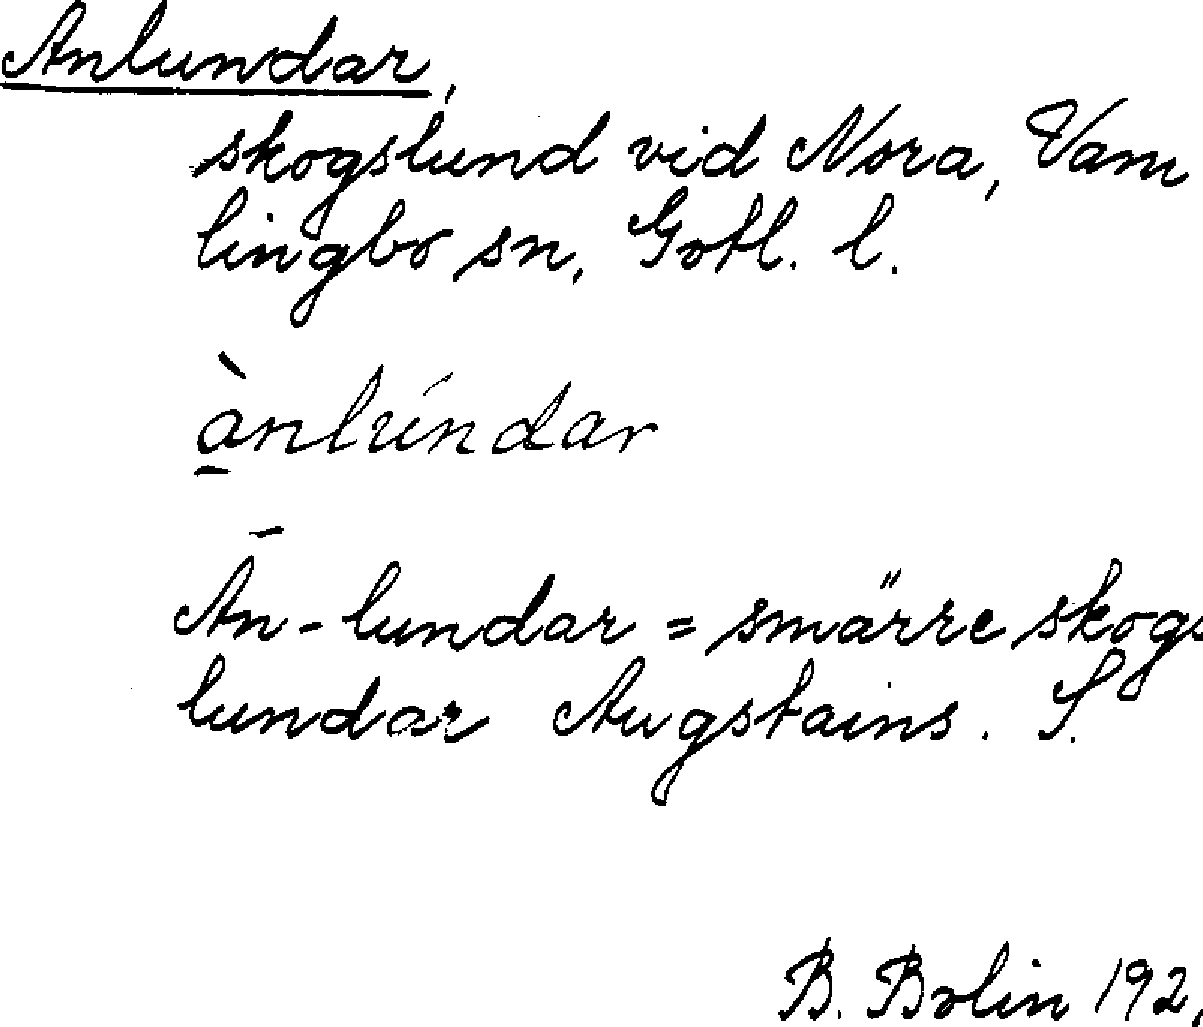 Anlundar,
skogslund vid Nora, Vam
lingbo sn, Gotl. l.
à̠nlúndar
An - lundar = smärre skogs
lundar Augstains. S.
B. Bolin 192